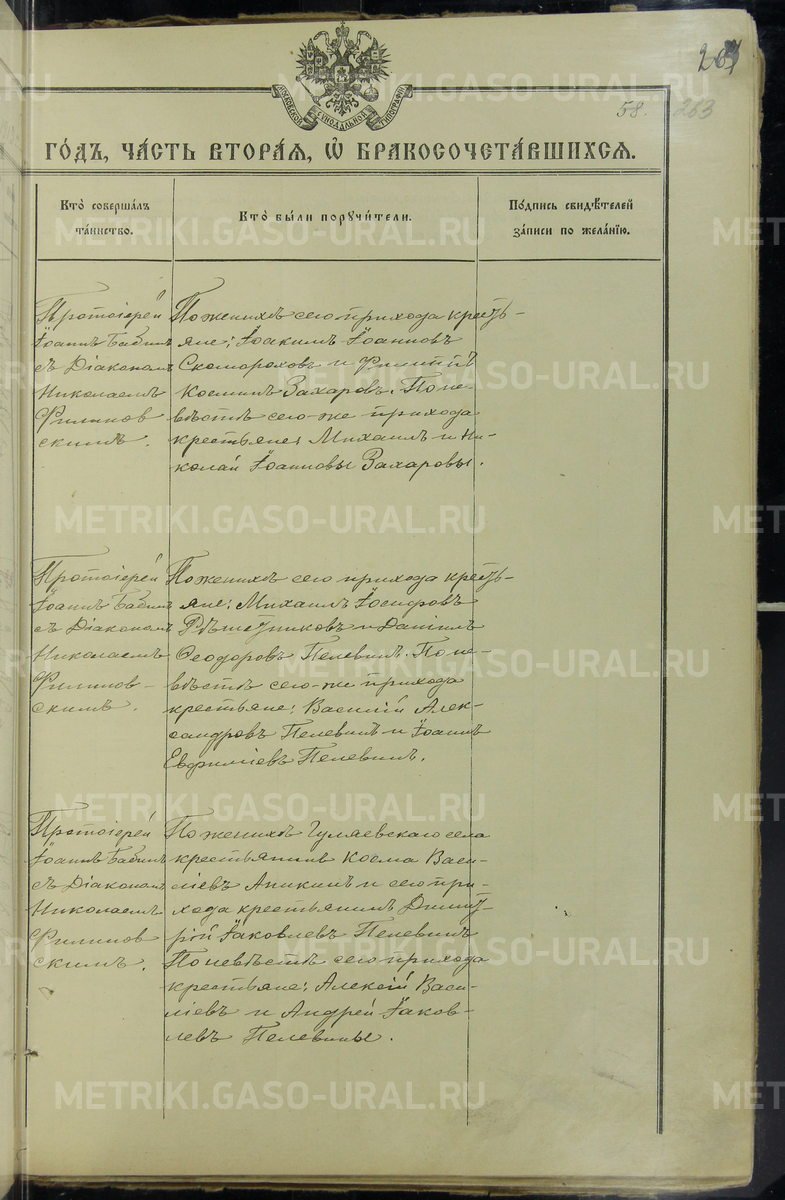 263
58. 263
МОСКОВСКОЙ СѴНОДАЛЬНОЙ ТИПОГРАФІИ
ГО́ДЪ, ЧА́СТЬ ВТОРА́Я, Ѡ҆ БРАКОСОЧЕТА́ВШИХСЯ.
Кто̀ соверша́лъ
та́инство.
Кто̀ бы́ли поручи́тели.
По́дпись свидѣ́телей
за́писи по жела́нїю.
Протоіерей
Іоаннъ Бабинъ
съ Діакономъ
Николаемъ
Филинов
скимъ.
По женихѣ сего прихода кресть-
яне: Іоакимъ Іоанновъ
Скомороховъ и Филиппъ
Косминъ Захаровъ. По не-
вѣстѣ сего-же прихода
крестьяне: Михаилъ и Ни-
колай Іоанновы Захаровы.
Протоіерей
Іоаннъ Бабинъ
съ Діакономъ
Николаемъ
Филинов-
скимъ.
По женихѣ сего прихода кресть-
яне: Михаилъ Іосифовъ
Рѣшетниковъ и Даніилъ
Ѳеодоровъ Пелевинъ. По не-
вѣстѣ сего-же прихода
крестьяне: Василій Алек-
сандровъ Пелевинъ и Іоаннъ
Евфиміевъ Пелевинъ.
Протоіерей
Іоаннъ Бабинъ
съ Діакономъ
Николаемъ
Филинов
скимъ.
По женихѣ Гуляевскаго села
крестьянинъ Косма Васи-
ліевъ Аникинъ и сего при-
хода крестьянинъ Димит-
рій Іаковлевъ Пелевинъ
По невѣстѣ сего прихода
крестьяне: Алексій Васи-
ліевъ и Андрей Іаков-
левъ Пелевины.
METRIKI.GASO-URAL.RU
METRIKI.GASO-URAL.RU
METRIKI.GASO-URAL.RU
METRIKI.GASO-URAL.RU
METRIKI.GASO-URAL.RU